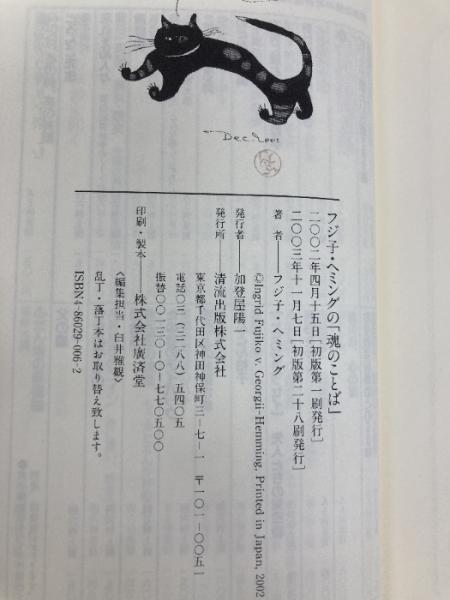 Dec. 2001
フジ子・ヘミングの「魂のことば」
二〇〇二年四月十五日[初版第一刷発行]
二〇〇三年十一月七日[初版第二十八刷発行]
著 者――フジ子・ヘミング
©Ingrid Fujiko v. Georgii-Hemming, Printed in Japan, 2002
発行者――加登屋陽一
発行所――清流出版株式会社
東京都千代田区神田神保町三-七-一 〒一〇一-〇〇五一
電話〇三(三二八八)五四〇五
振替〇〇一三〇-〇-七七〇五〇〇
印刷・製本――株式会社廣済堂
〈編集担当・臼井雅観〉
乱丁・落丁本はお取り替え致します。
ISBN4-86029-006-2